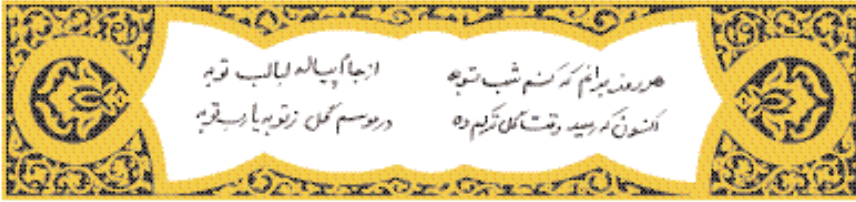 هر روز برانم که کنم شب توبه از جام پیاله لبالب توبه
اکنون که رسید وقت گل ترکم ده در موسم گل ز توبه یا رب توبه